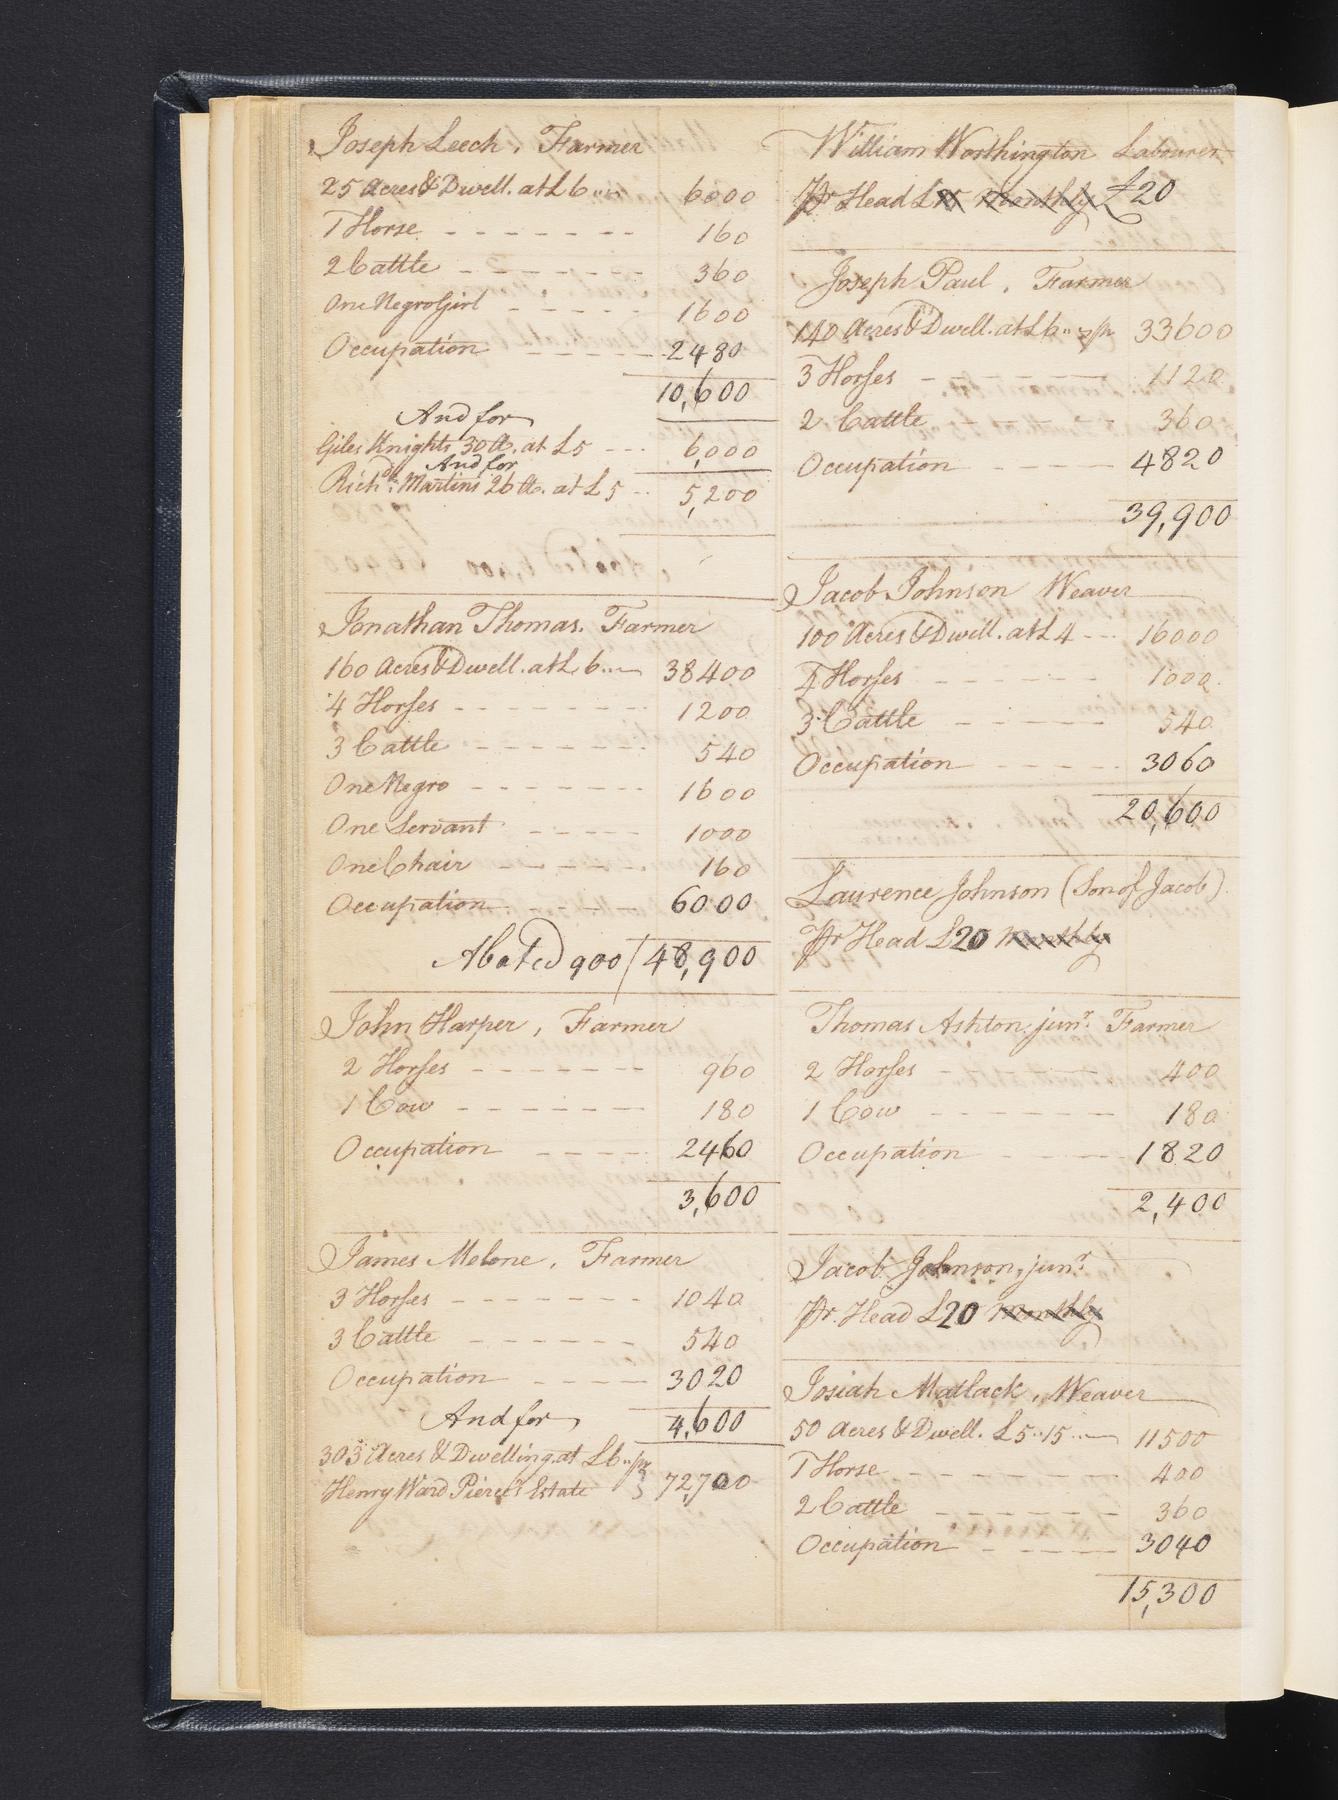 Joseph Leech, Farmer
25 Acres & Dwell. at £6 6000
1 Horse 160
2 Cattle 360
One Negro Girl 1600
Occupation 2480
10,600
And for
Giles Knights 30 A. at £5 6,000
And for
Richd. Martins 26 A. at £5 5,200
Jonathan Thomas. Farmer
160 Acres & Dwell. at £6 38400
4 Horses 1200
3 Cattle 540
One Negro 1600
One Servant 1000
One Chair 160
Occupation 6000
Abated 900 / 48,900
John Harper, Farmer
2 Horses 960
1 Cow 180
Occupation 2460
3,600
James Melone, Farmer
3 Horses 1040
3 Cattle 540
Occupation 3020
4,600
And for
303 Acres & Dwelling at £6 pr
Henry Ward Pierce's Estate 72,700
William Worthington Labourer
Pr Head £ Monthly £20
Joseph Paul, Farmer
140 Acres & Dwell. at £6 33600
3 Horses 1120
2 Cattle 360
Occupation 4820
39,900
Jacob Johnson Weaver
100 Acres & Dwell. at £4 16000
4 Horses 1000
3 Cattle 540
Occupation 3060
20,600
Laurence Johnson (Son of Jacob)
Pr Head £20 Monthly
Thomas Ashton, junr. Farmer
2 Horses 400
1 Cow 180
Occupation 1820
2,400
Jacob Johnson, junr
Pr. Head £20 Monthly
Josiah Matlack, Weaver
50 Acres & Dwell. £5..15 11500
1 Horse 400
2 Cattle 360
Occupation 3040
15,300